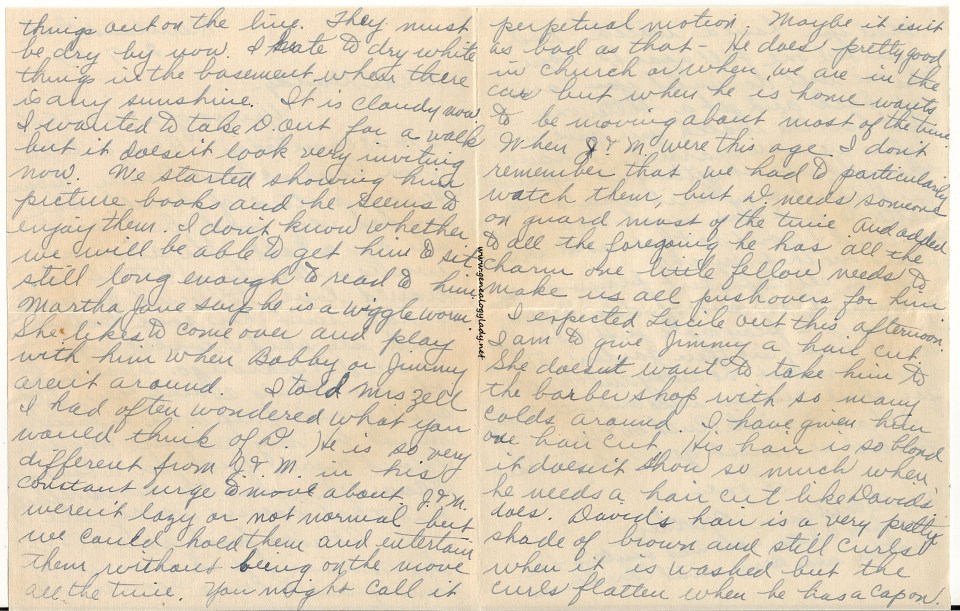 things out on the line. They must
be dry by now. I hate to dry white
things in the basement when there
is any sunshine. It is cloudy now.
I wanted to take D. out for a walk
but it doesn't look very inviting
now. We started showing him
picture books and he seems to
enjoy them. I don't know whether
we will be able to get him to sit
still long enough to read to him.
Martha Jane says he is a wiggle worm.
She likes to come over and play
with him when Bobby or Jimmy
aren't around. I told Mrs Zell
I had often wondered what you
would think of D. He is so very
different from J & M. in his
constant urge to move about. J. & M.
weren't lazy or not normal but
we could hold them and entertain
them without being on the move
all the time. You might call it
perpetual motion. Maybe it isn't
as bad as that - He does pretty good
in church or when we are in the
car but when he is home wants
to be moving about most of the time.
When J. & M were this age I don't
remember that we had to particularly
watch them, but D. needs someone
on guard most of the time. And added
to all the foregoing he has all the
charm one little fellow needs to
make us all pushovers for him
I expected Lucile out this afternoon.
I am to give Jimmy a hair cut.
She doesn't want to take him to
the barber shop with so many
colds around. I have given him
one hair cut. His hair is so blond
it doesn't show so much when
he needs a hair cut like David's
does. David's hair is a very pretty
shade of brown and still curls
when it is washed but the
curls flatten when he has a cap on.
www.genealogylady.net